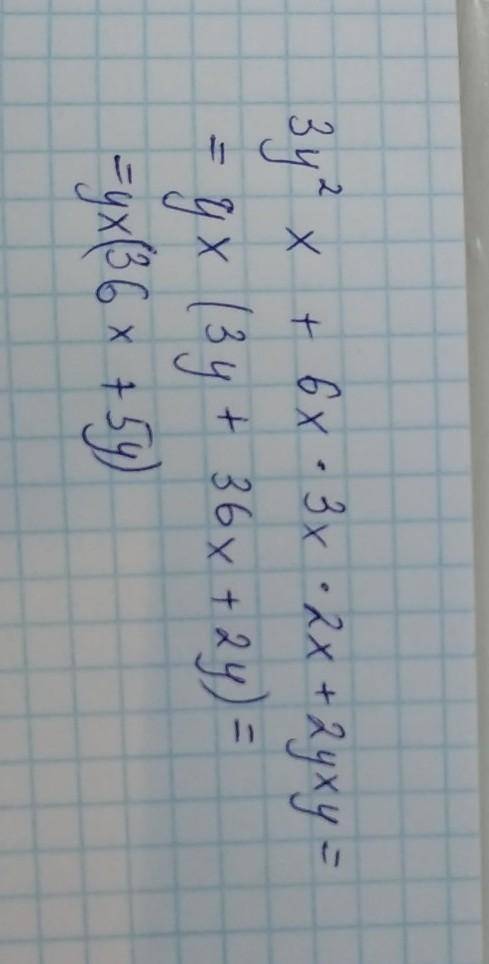 3y² x + 6x · 3x · 2x + 2yxy =
= yx (3y + 36x + 2y) =
= yx(36x + 5y)